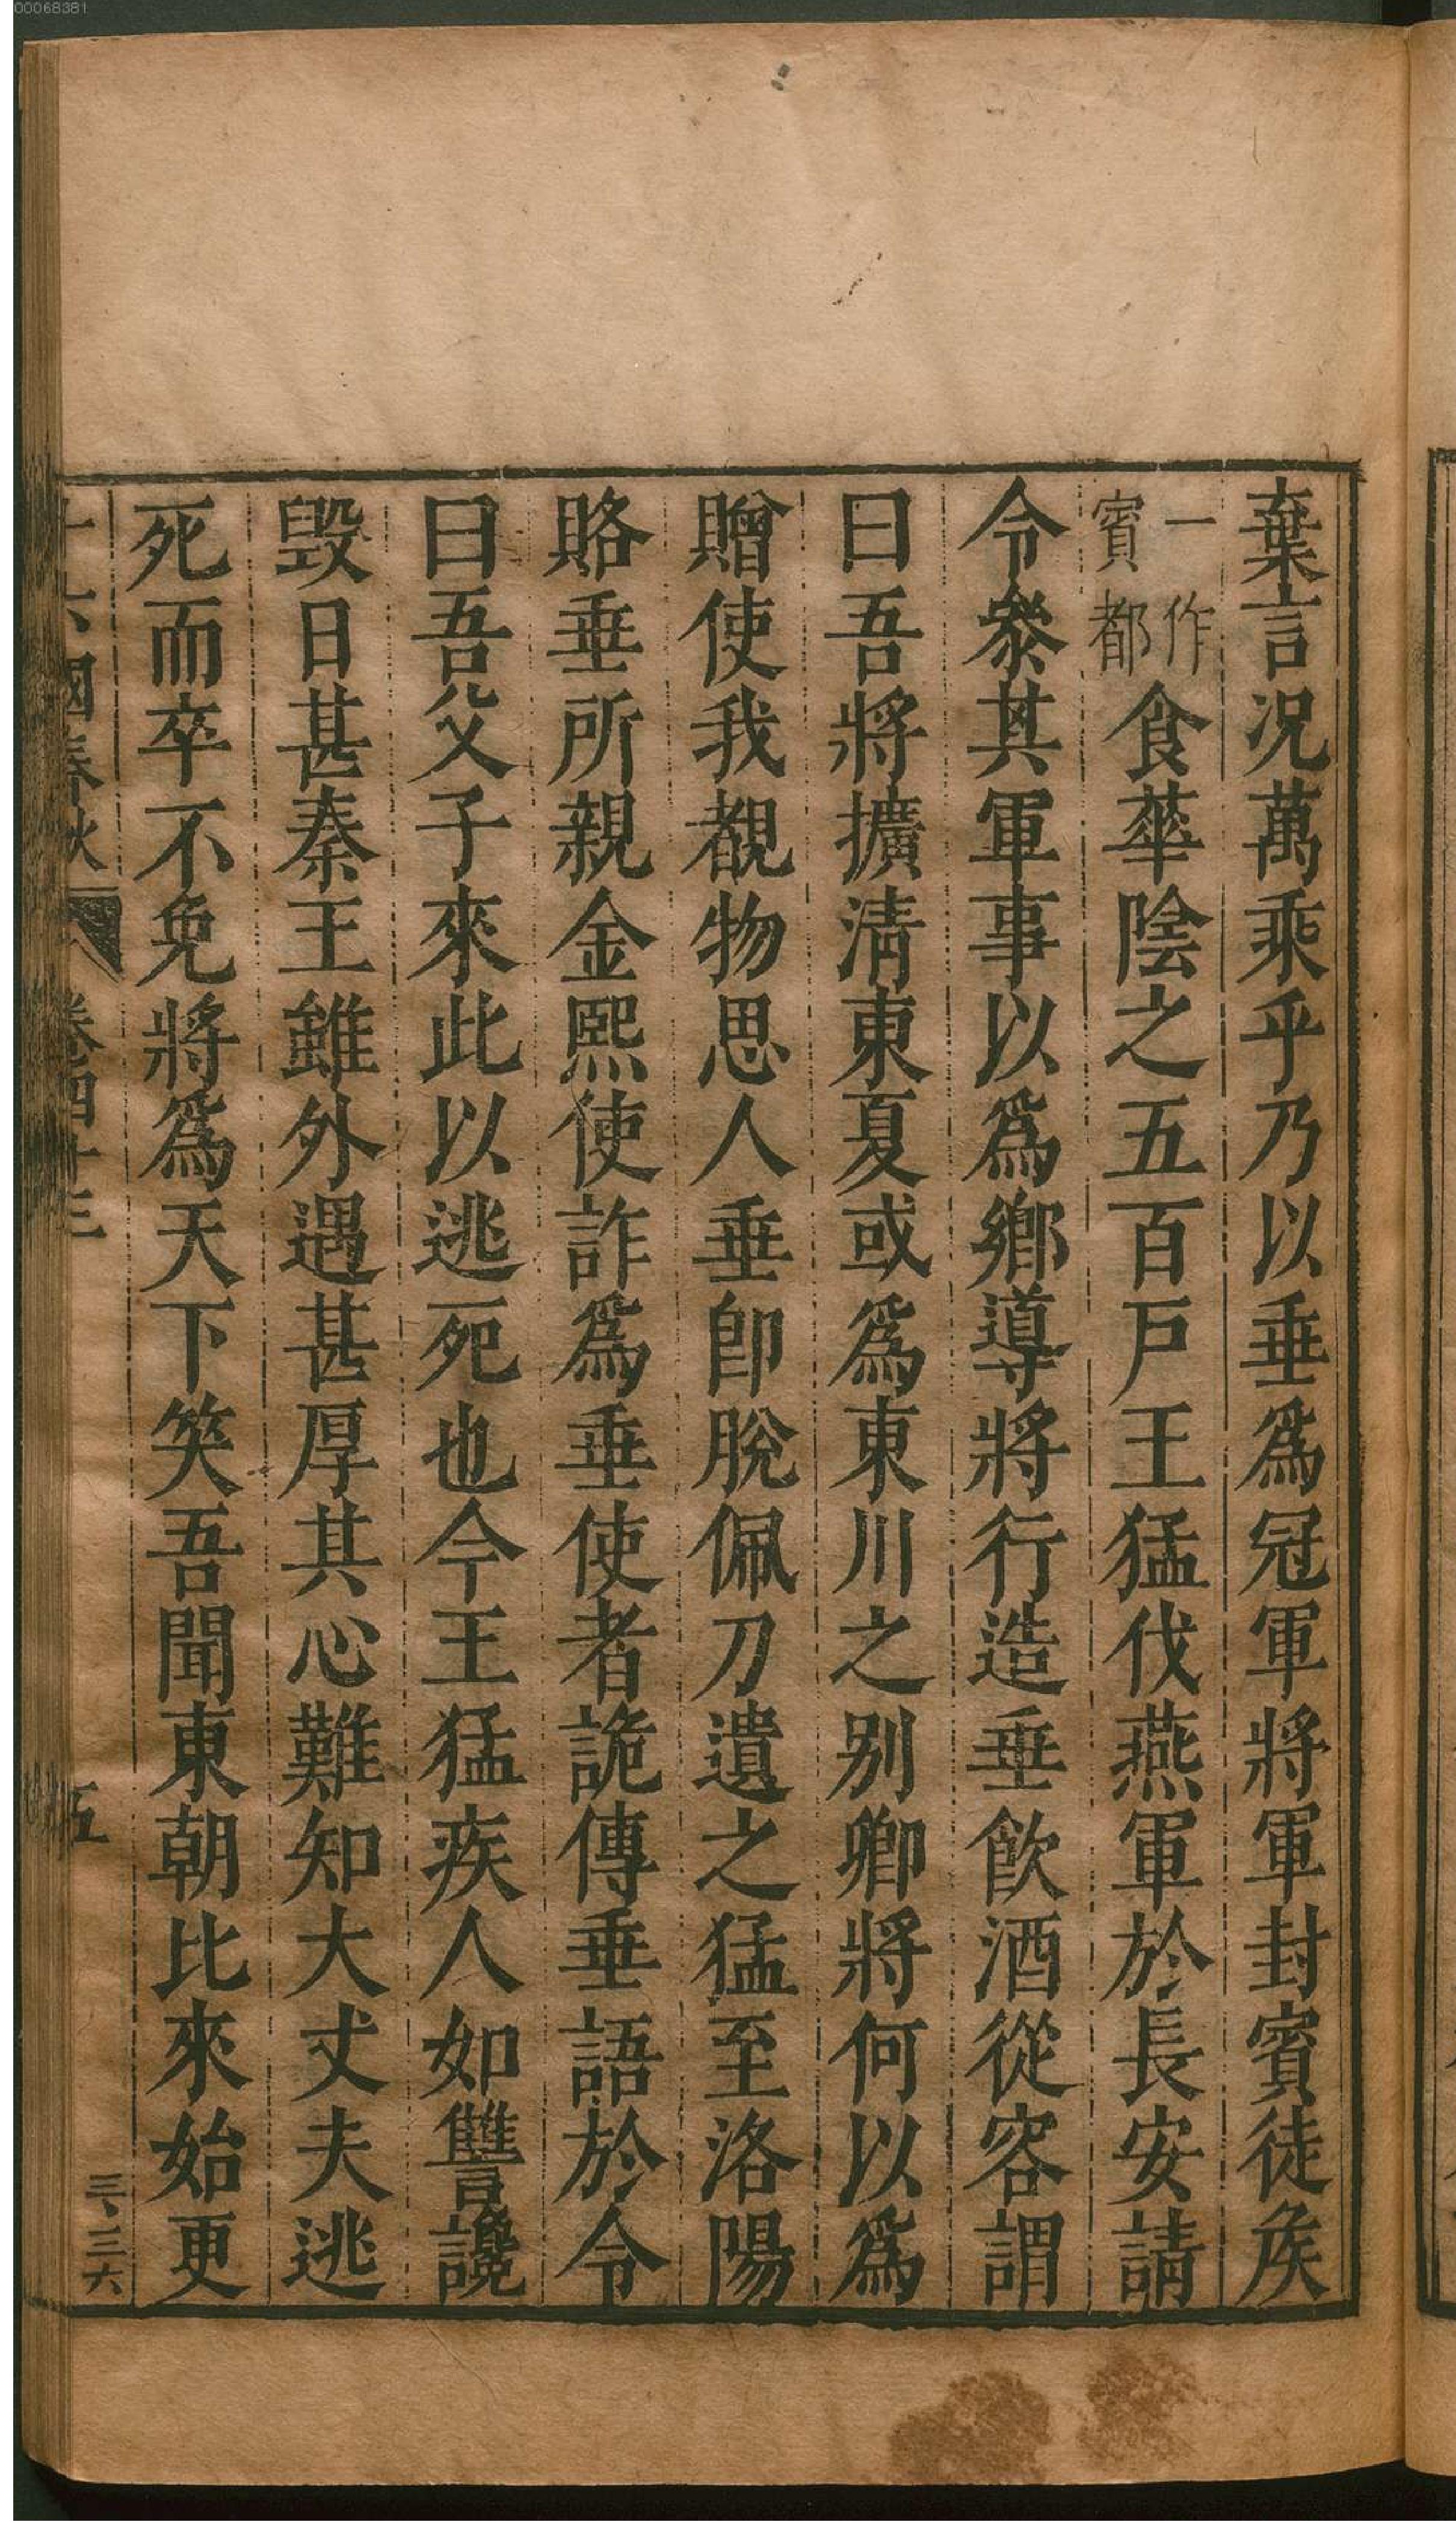 00068381
棄言况萬乘乎乃以垂爲冠軍將軍封賓徒矦
一作賓都食華陰之五百戸王猛伐燕軍於長安請
令叅其軍事以爲鄉導將行造垂飲酒從容謂
曰吾將擴淸東夏或爲東川之别卿將何以爲
贈使我覩物思人垂卽脫佩刀遺之猛至洛陽
賂垂所親金熙使詐爲垂使者詭傳垂語於令
曰吾父子來此以逃死也今王猛疾人如讐讒
毀日甚秦王雖外遇甚厚其心難知大丈夫逃
死而卒不免將爲天下笑吾聞東朝比來始更
十六國春秋 卷四十三 五 三、三六